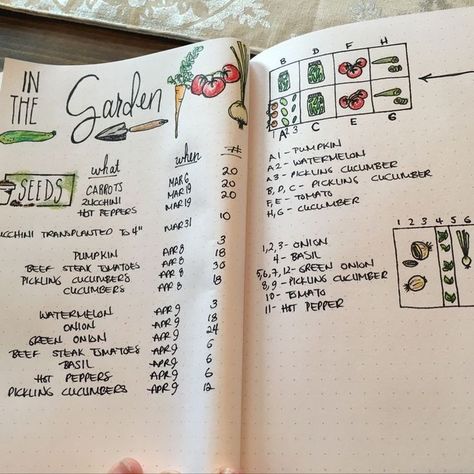 IN
THE
Garden
what when #
SEEDS
CARROTS MAR 6 20
ZUCCHINI MAR 19 20
HOT PEPPERS MAR 19 20
ZUCCHINI TRANSPLANTED TO 4" MAR 31 10
PUMPKIN APR 8 3
BEEF STEAK TOMATOES APR 8 18
PICKLING CUCUMBERS APR 8 36
CUCUMBERS APR 8 18
WATERMELON APR 9 3
ONION APR 9 18
GREEN ONION APR 9 24
BEEF STEAK TOMATOES APR 9 6
BASIL APR 9 6
HOT PEPPERS APR 9 6
PICKLING CUCUMBERS APR 9 12
B D F H
1 2 3
A C E G
A1 - PUMPKIN
A2 - WATERMELON
A3 - PICKLING CUCUMBER
B, D, C - PICKLING CUCUMBER
F, E - TOMATO
H, G - CUCUMBER
1 2 3 4 5 6
1, 2, 3 - ONION
4 - BASIL
5, 6, 7, 12 - GREEN ONION
8, 9 - PICKLING CUCUMBER
10 - TOMATO
11 - HOT PEPPER